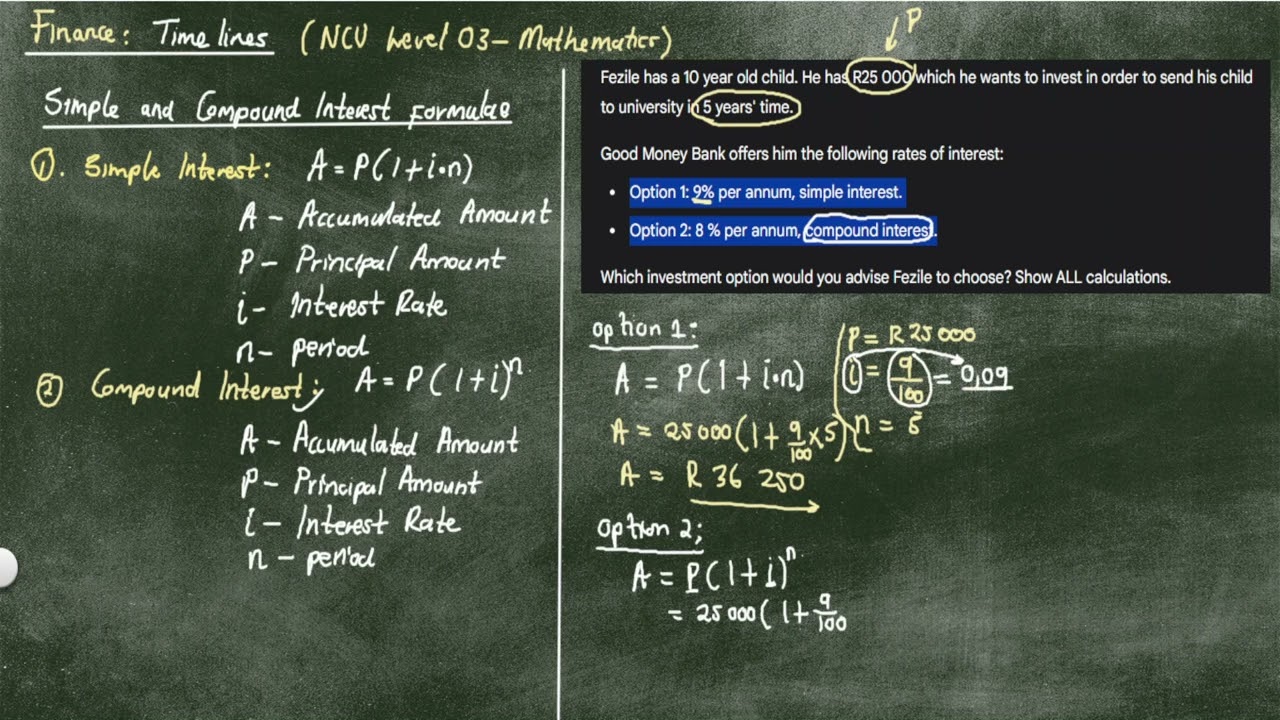 Finance: Time lines (NCV Level 03 - Mathematics)
Simple and Compound Interest formulae
①. Simple Interest: A = P(1+i·n)
A - Accumulated Amount
P - Principal Amount
i - Interest Rate
n - period
② Compound Interest: A = P(1+i)^n
A - Accumulated Amount
P - Principal Amount
i - Interest Rate
n - period
P
Fezile has a 10 year old child. He has R25 000 which he wants to invest in order to send his child
to university in 5 years' time.
Good Money Bank offers him the following rates of interest:
• Option 1: 9% per annum, simple interest.
• Option 2: 8 % per annum, compound interest.
Which investment option would you advise Fezile to choose? Show ALL calculations.
option 1:
P = R 25 000
A = P(1 + i·n)
i = 9/100 = 0,09
A = 25 000(1 + 9/100 × 5)
n = 5
A = R 36 250
option 2;
A = P(1+i)^n
= 25 000(1 + 9/100